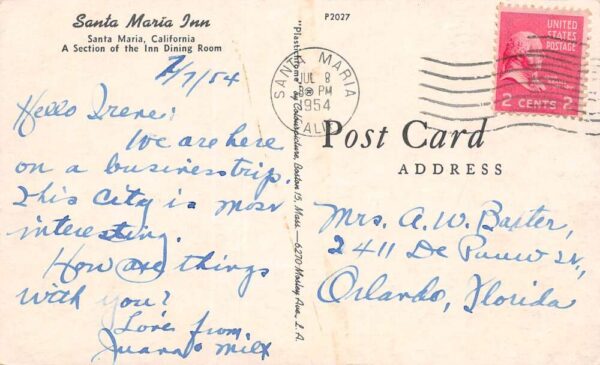 Santa Maria Inn
Santa Maria, California
A Section of the Inn Dining Room
7/7/54
Hello Irene:
We are here
on a business trip.
This City is most
interesting.
How are things
with you?
Love from,
Juana & Milt
P2027
"Plastichrome" by Colourpicture, Boston 15, Mass.—6270 Morley Ave., L. A.
SANTA MARIA
JUL 8
8 PM
1954
CALIF.
UNITED
STATES
POSTAGE
2 CENTS 2
Post Card
ADDRESS
Mrs. A. W. Baxter,
2411 De Pauw
Orlando, Florida